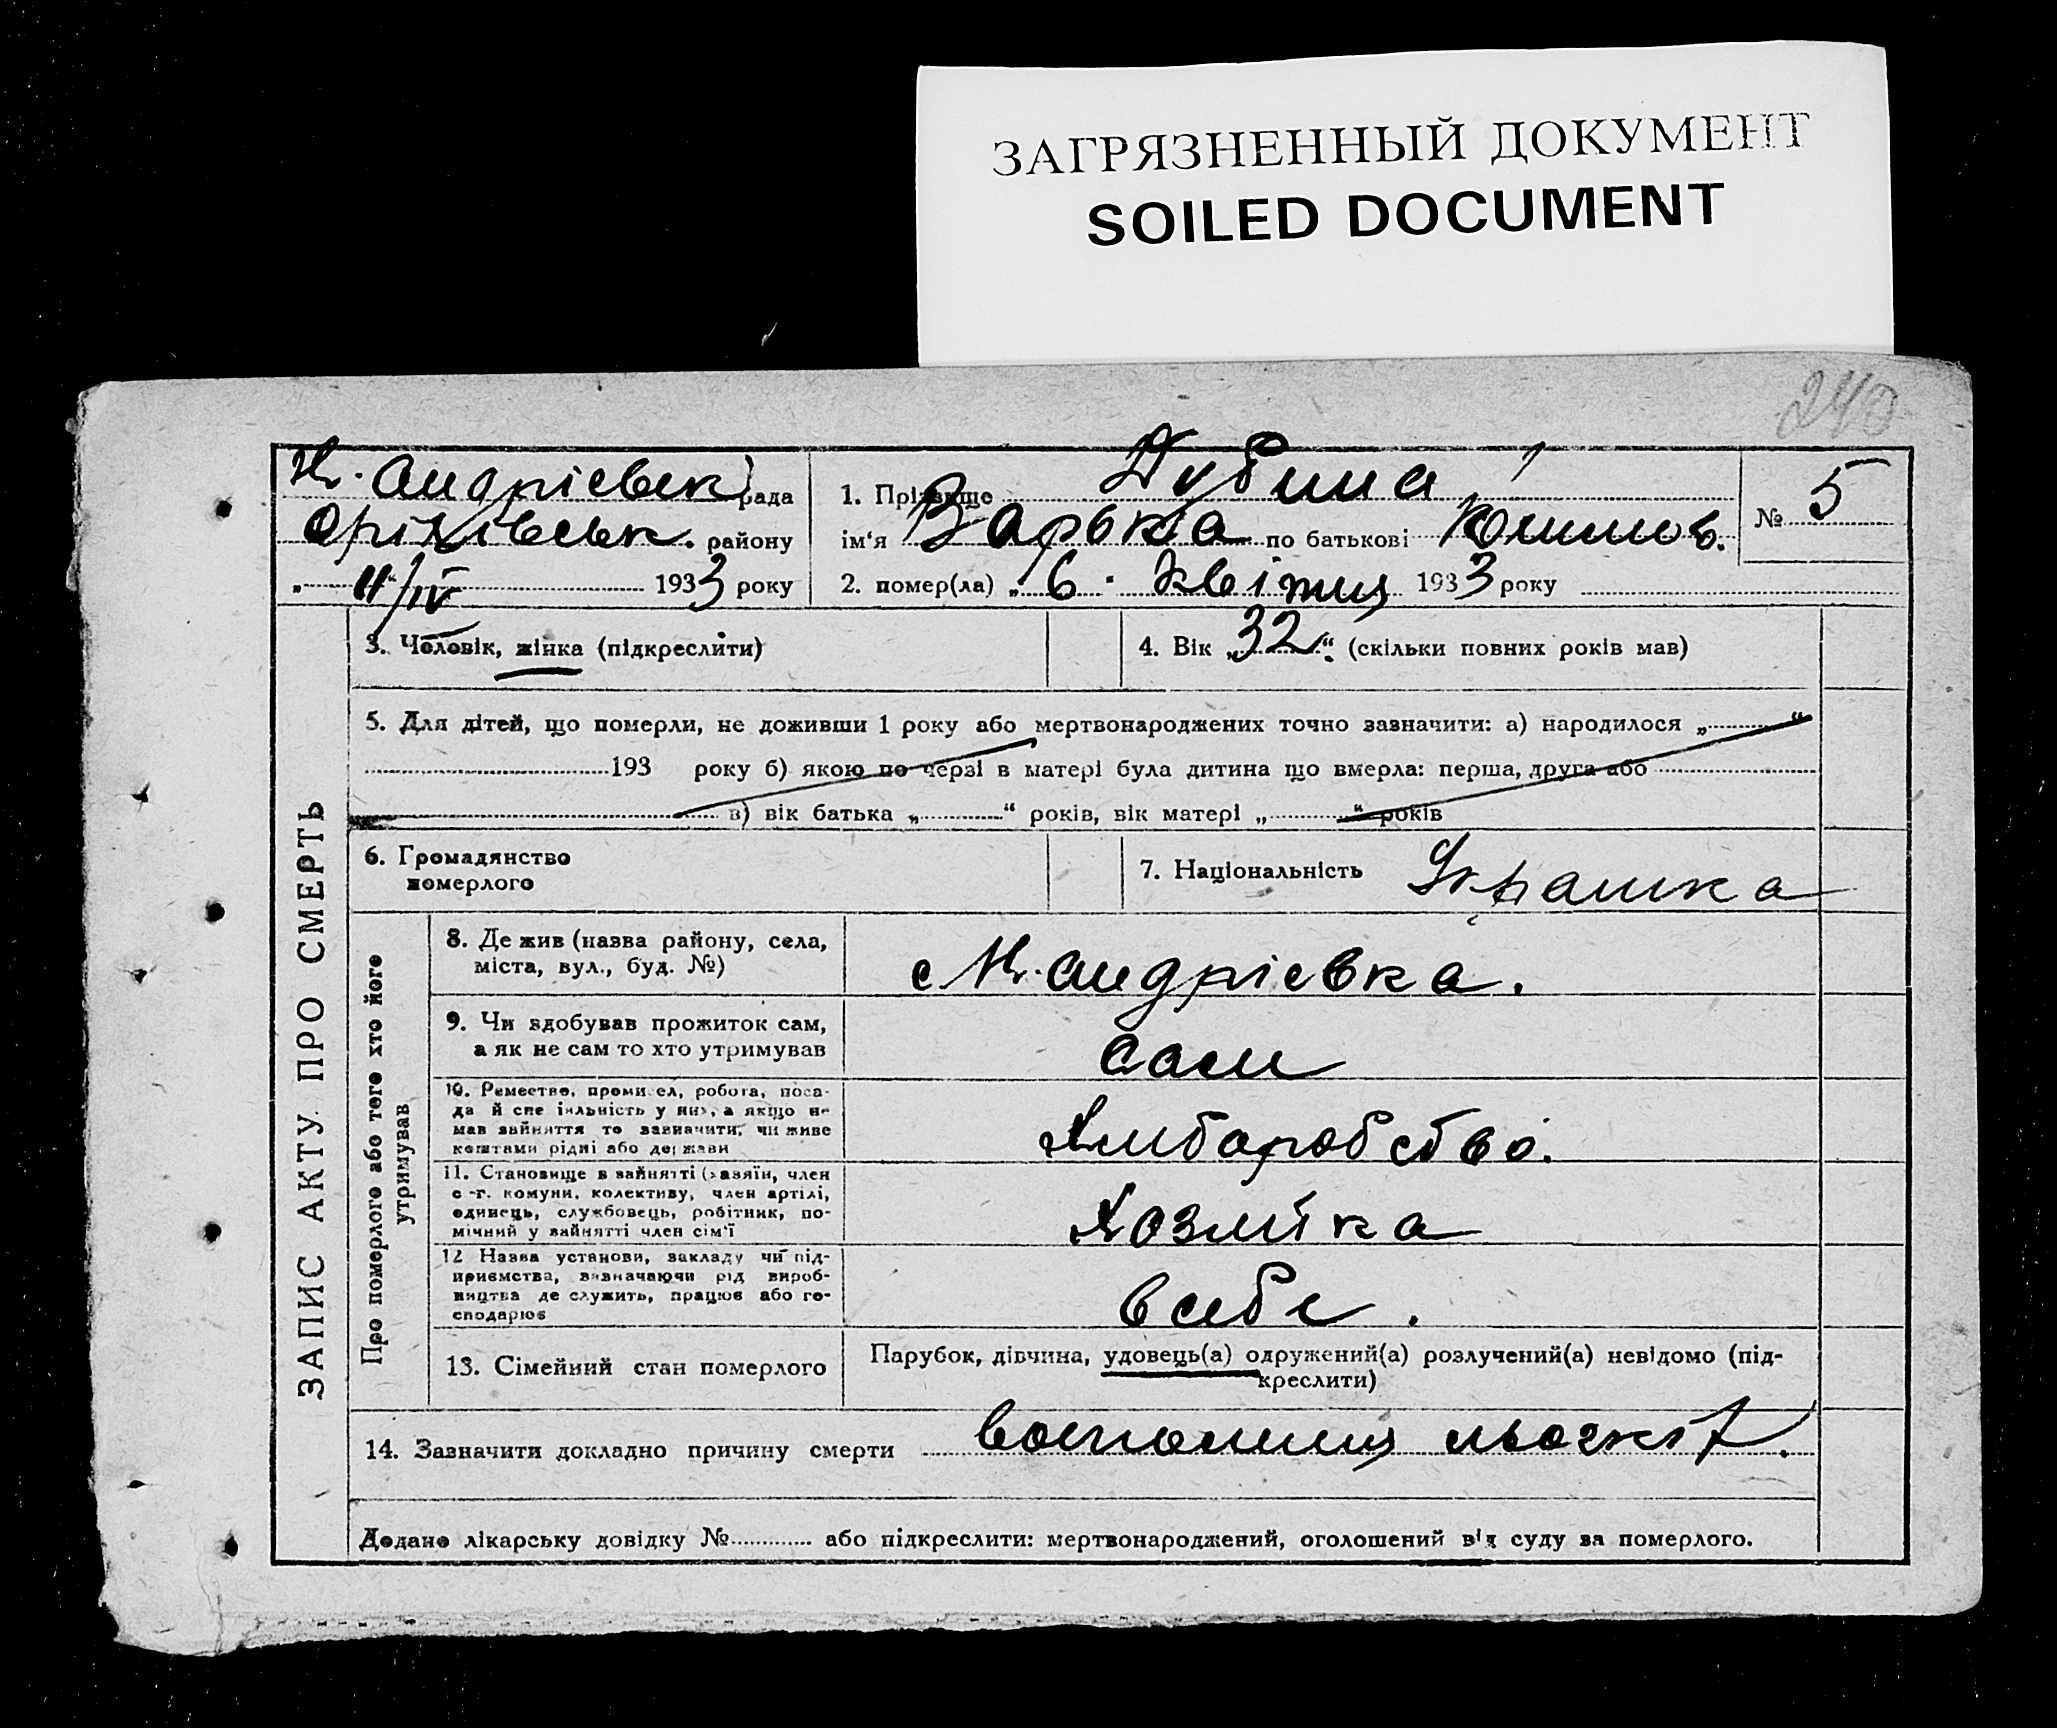 ЗАГРЯЗНЕННЫЙ ДОКУМЕНТ
SOILED DOCUMENT
240
Н. Андрієвськ рада
Оріхівськ. району
„ 11/IV 1933 року
1. Прізвище Дубина
ім'я Варька по батькові
№ 5
2. помер(ла) „6. квітня 1933 року
ЗАПИС АКТУ ПРО СМЕРТЬ
3. Чоловік, жінка (підкреслити)
4. Вік „32“ (скільки повних років мав)
5. Для дітей, що померли, не доживши 1 року або мертвонароджених точно зазначити: а) народилося „ “
193 року б) якою по черзі в матері була дитина що вмерла: перша, друга або
в) вік батька „ “ років, вік матері „ “ років
6. Громадянство
померлого
7. Національність Украінка
Про померлого або того хто його
утримував
8. Де жив (назва району, села,
міста, вул., буд. №)
с Н. Андрієвка.
9. Чи здобував прожиток сам,
а як не сам то хто утримував
Сам
10. Ремество, промисел, робота, поса-
да й спеціяльність у них, а якщо не
мав зайняття то зазначити, чи живе
коштами рідні або держави
Хліборобство.
11. Становище в зайнятті (хазяїн, член
с.-г. комуни, колективу, член артілі,
одинець, службовець, робітник, по-
мічний у зайнятті член сім'ї
Хозяйка
12 Назва установи, закладу чи під-
приємства, зазначаючи рід вироб-
ництва де служить, працює або го-
сподарює
в себе.
13. Сімейний стан померлого
Парубок, дівчина, удовець(а) одружений(а) розлучений(а) невідомо (під-
креслити)
14. Зазначити докладно причину смерти
Додано лікарську довідку № або підкреслити: мертвонароджений, оголошений від суду за померлого.